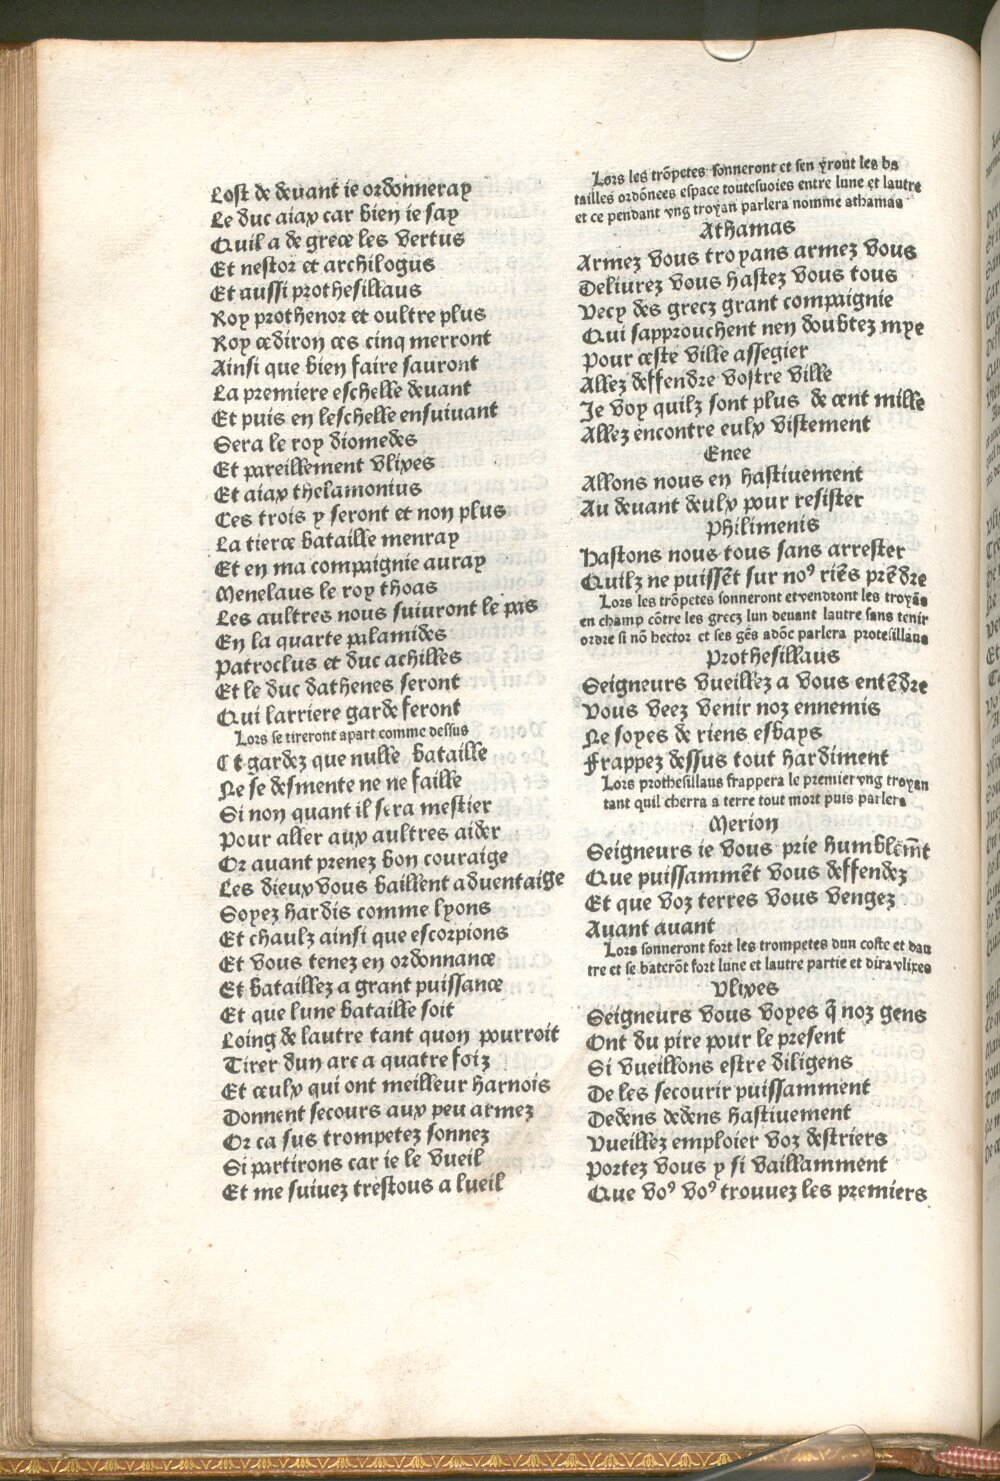 Lost de deuant ie ordonneray
Le duc aiax car bien ie say
Quil a de grece les vertus
Et nestor et archilogus
Et aussi prothesillaus
Roy prothenor et oultre plus
Roy cediron ces cinq merront
Ainsi que bien faire sauront
La premiere eschelle deuant
Et puis en leschelle ensuiuant
Sera le roy diomedes
Et pareillement vlixes
Et aiax thelamonius
Ces trois y seront et non plus
La tierce bataille menray
Et en ma compaignie auray
Menelaus le roy thoas
Les aultres nous suiuront le pas
En la quarte palamides
Patroclus et duc achilles
Et le duc dathenes seront
Qui larriere garde feront
Lors se tireront apart comme dessus
Et gardez que nulle bataille
Ne se desmente ne ne faille
Si non quant il sera mestier
Pour aller aux aultres aider
Or auant prenez bon couraige
Les dieux vous baillent aduentaige
Soyez hardis comme lyons
Et chaulz ainsi que escorpions
Et vous tenez en ordonnance
Et bataillez a grant puissance
Et que lune bataille soit
Loing de lautre tant quon pourroit
Tirer dun arc a quatre foiz
Et ceulx qui ont meilleur harnois
Donnent secours aux peu armez
Or ca sus trompetez sonnez
Si partirons car ie le vueil
Et me suiuez trestous a lueil
Lors les trõpetes sonneront et sen yront les ba
tailles ordõnees espace toutesuoies entre lune et lautre
et ce pendant vng troyan parlera nomme athamas
Athamas
Armez vous troyans armez vous
Deliurez vous hastez vous tous
Vecy des grecz grant compaignie
Qui sapprouchent nen doubtez mye
Pour ceste ville assegier
Allez deffendre vostre ville
Je voy quilz sont plus de cent mille
Allez encontre eulx vistement
Enee
Allons nous en hastiuement
Au deuant deulx pour resister
Philimenis
Hastons nous tous sans arrester
Quilz ne puissẽt sur noꝰ riẽs prẽdre
Lors les trõpetes sonneront et vendront les troyãs
en champ cõtre les grecz lun deuant lautre sans tenir
ordre si nõ hector et ses gẽs adõc parlera protesillaus
Prothesillaus
Seigneurs vueillez a vous entẽdre
Vous veez venir noz ennemis
Ne soyes de riens esbays
Frappez dessus tout hardiment
Lors prothesillaus frappera le premier vng troyan
tant quil cherra a terre tout mort puis parlera
Merion
Seigneurs ie vous prie humblem̃t
Que puissammẽt vous deffendez
Et que voz terres vous vengez
Auant auant
Lors sonneront fort les trompetes dun coste et dau
tre et se baterõt fort lune et lautre partie et dira vlixes
Vlixes
Seigneurs vous voyes q̃ noz gens
Ont du pire pour le present
Si vueillons estre diligens
De les secourir puissamment
Dedens dedens hastiuement
Vueillez emploier voz destriers
Portez vous y si vaillamment
Que voꝰ voꝰ trouuez les premiers